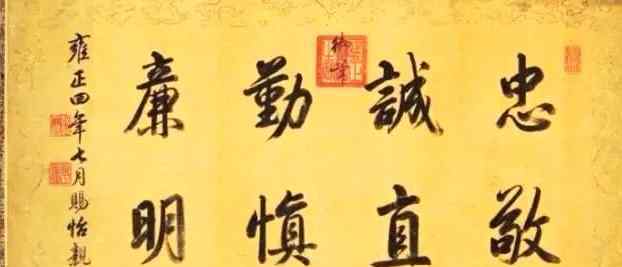 忠敬
誠直
御筆
勤慎
廉明
雍正四年七月賜怡親